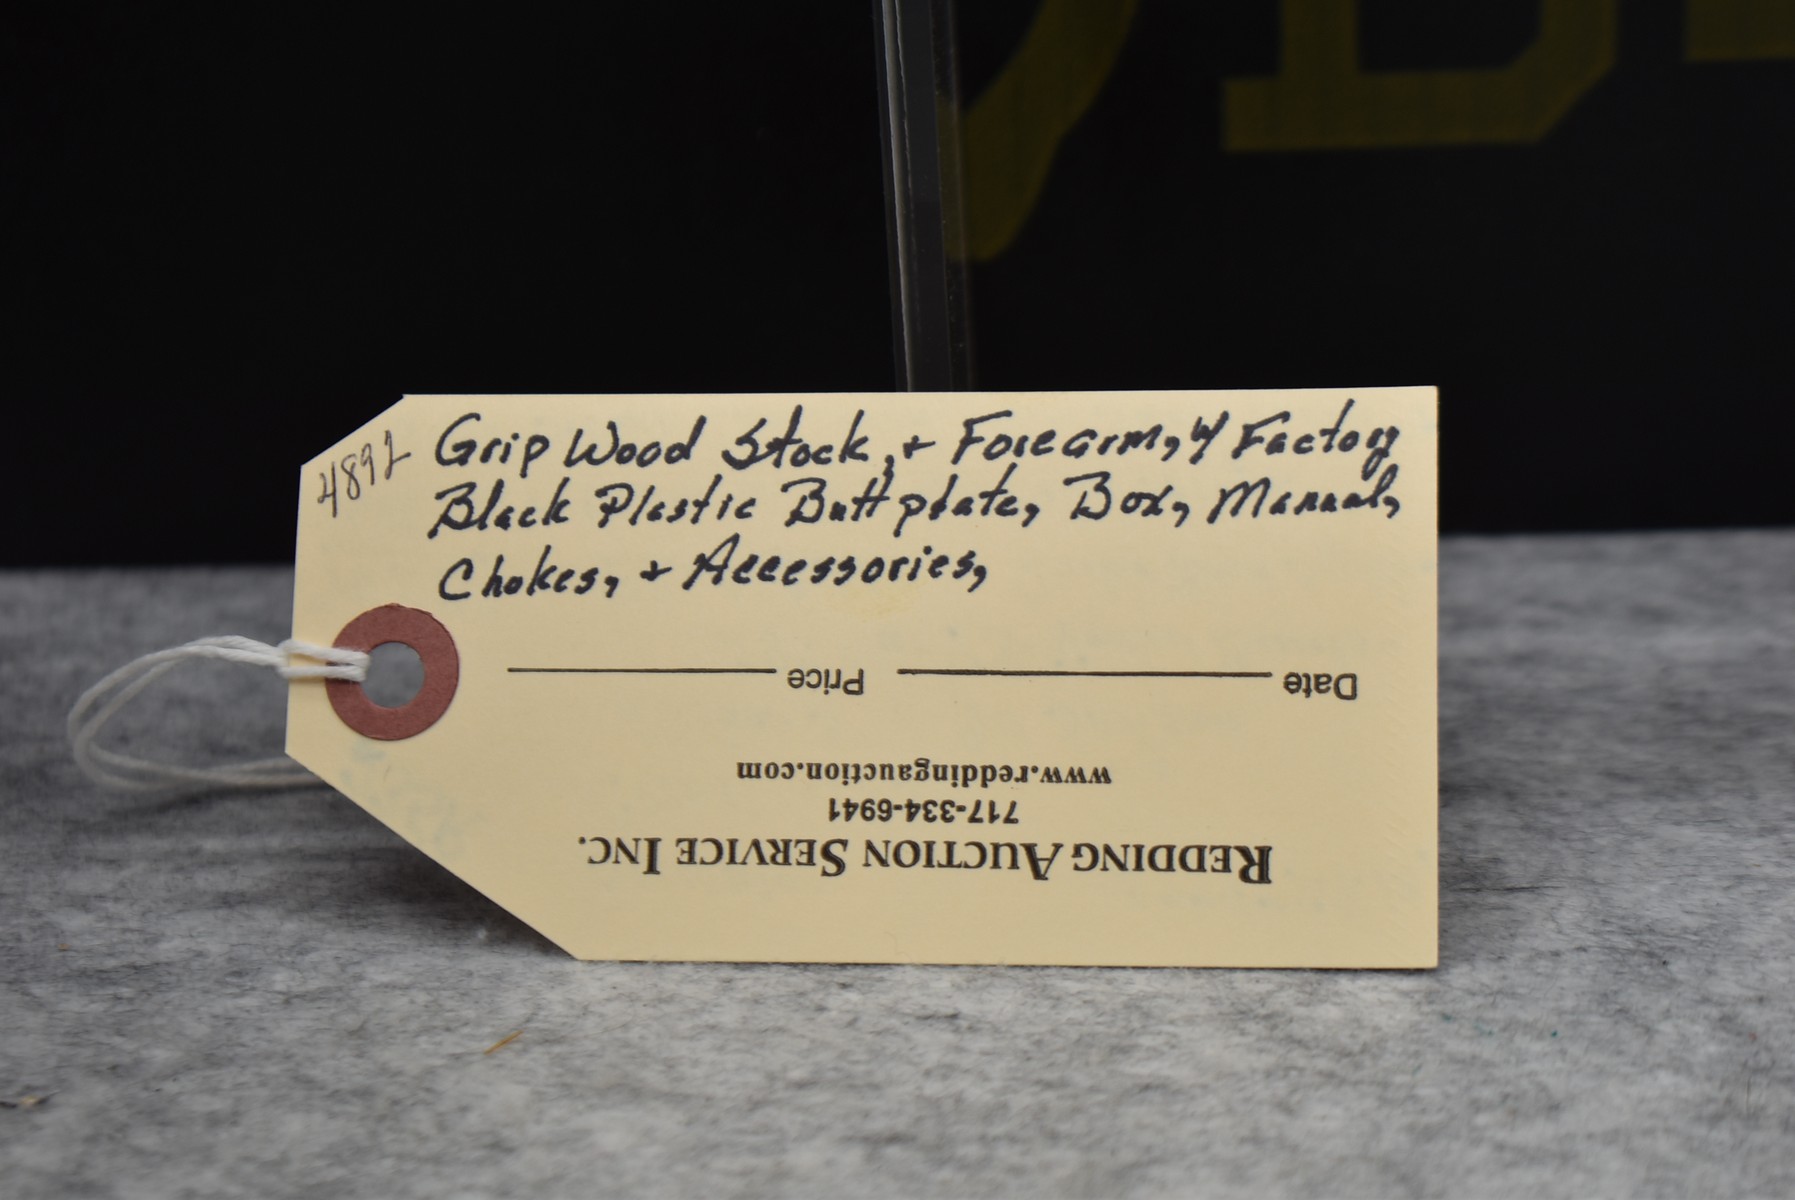 4892
Grip Wood Stock, + Forearm, w/ Factory
Black Plastic Buttplate, Box, Manual,
Chokes, + Accessories,
Date Price
REDDING AUCTION SERVICE INC.
717-334-6941
www.reddingauction.com